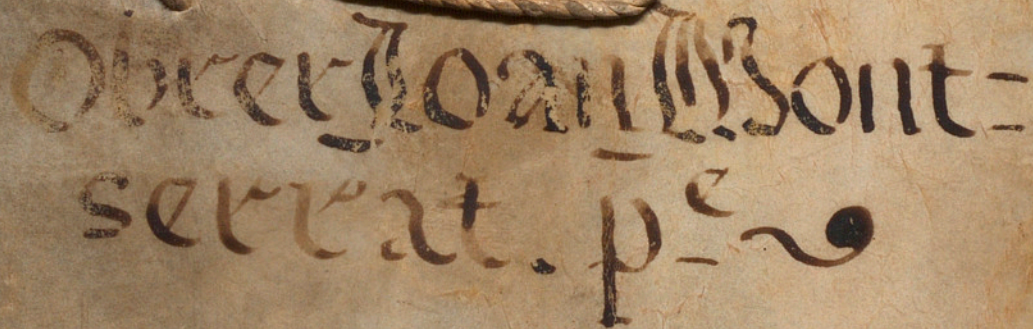 Obrer Joan Mont=
serrat. pͤ